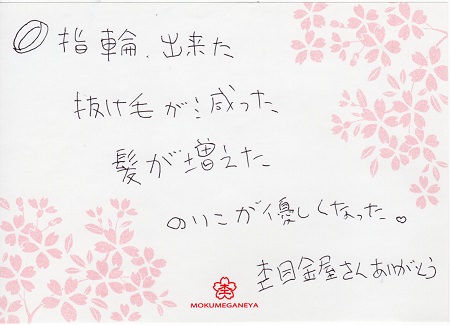 ◎指輪、出来た
抜け毛が減った
髪が増えた
のりこが優しくなった。
杢目金屋さんありがとう
MOKUMEGANEYA